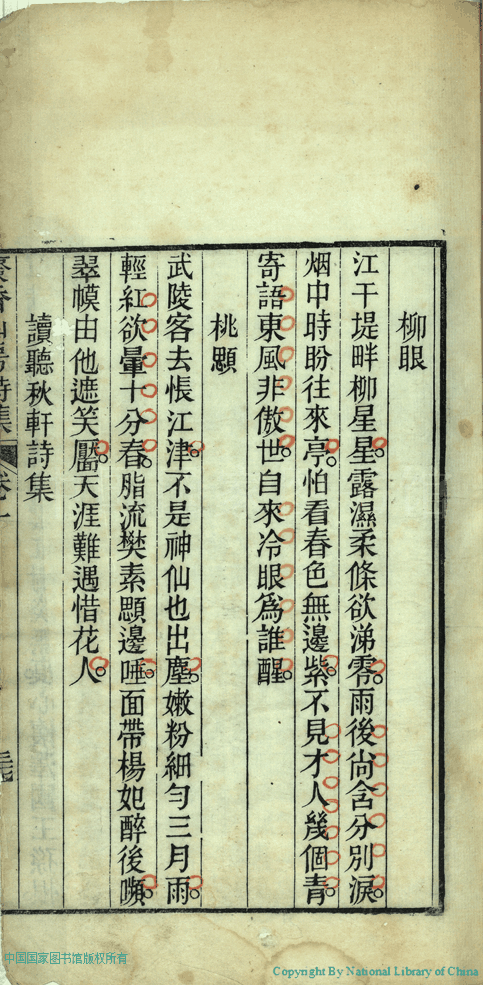 柳眼
江干堤畔柳星星露濕柔條欲涕零雨後尙含分別淚
烟中時盼往來亭怕看春色無邊紫不見才人幾個青
寄語東風非傲世自來冷眼爲誰醒
桃顋
武陵客去悵江津不是神仙也出塵嫩粉細勻三月雨
輕紅欲暈十分春脂流樊素顋邊唾面帶楊妃醉後嚬
翠幙由他遮笑靨天涯難遇惜花人
讀聽秋軒詩集
香山房詩集 卷一
中国国家图书馆版权所有
Copyright By National Library of China